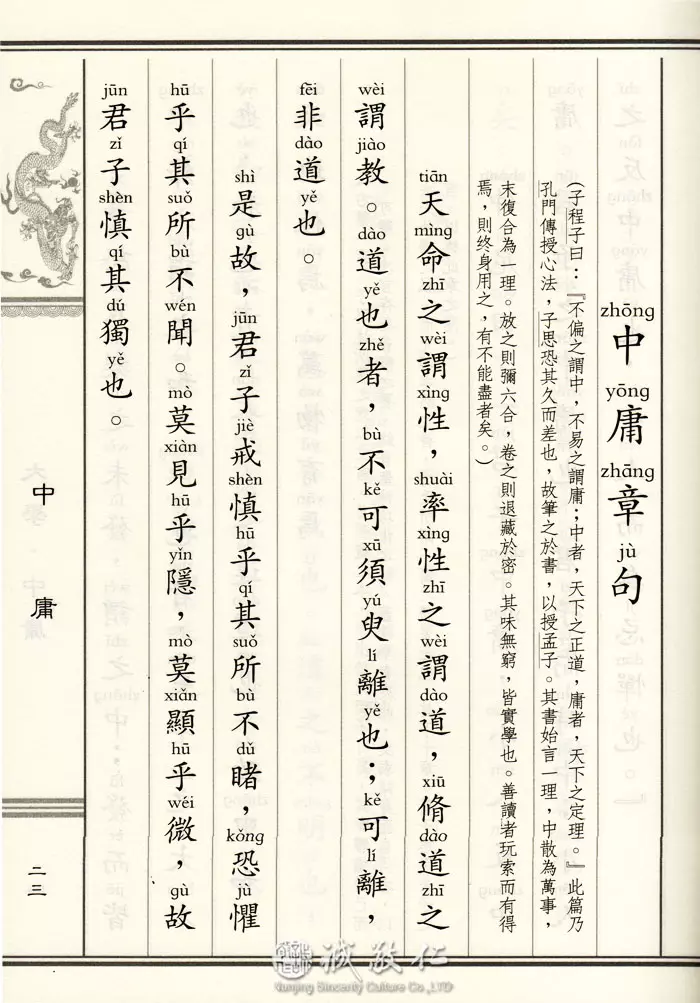 zhōng yōng zhāng jù
中庸章句
(子程子曰：『不偏之謂中，不易之謂庸；中者，天下之正道，庸者，天下之定理。』此篇乃
孔門傳授心法，子思恐其久而差也，故筆之於書，以授孟子。其書始言一理，中散為萬事，
末復合為一理。放之則彌六合，卷之則退藏於密。其味無窮，皆實學也。善讀者玩索而有得
焉，則終身用之，有不能盡者矣。)
tiān mìng zhī wèi xìng shuài xìng zhī wèi dào xiū dào zhī
天命之謂性，率性之謂道，脩道之
wèi jiào dào yě zhě bù kě xū yú lí yě kě lí
謂教。道也者，不可須臾離也；可離，
fēi dào yě
非道也。
shì gù jūn zǐ jiè shèn hū qí suǒ bù dǔ kǒng jù
是故，君子戒慎乎其所不睹，恐懼
hū qí suǒ bù wén mò xiàn hū yǐn mò xiǎn hū wéi gù
乎其所不聞。莫見乎隱，莫顯乎微，故
jūn zǐ shèn qí dú yě
君子慎其獨也。
中庸
二三
誠敬仁
Nanjing Sincerity Culture Co.,LTD